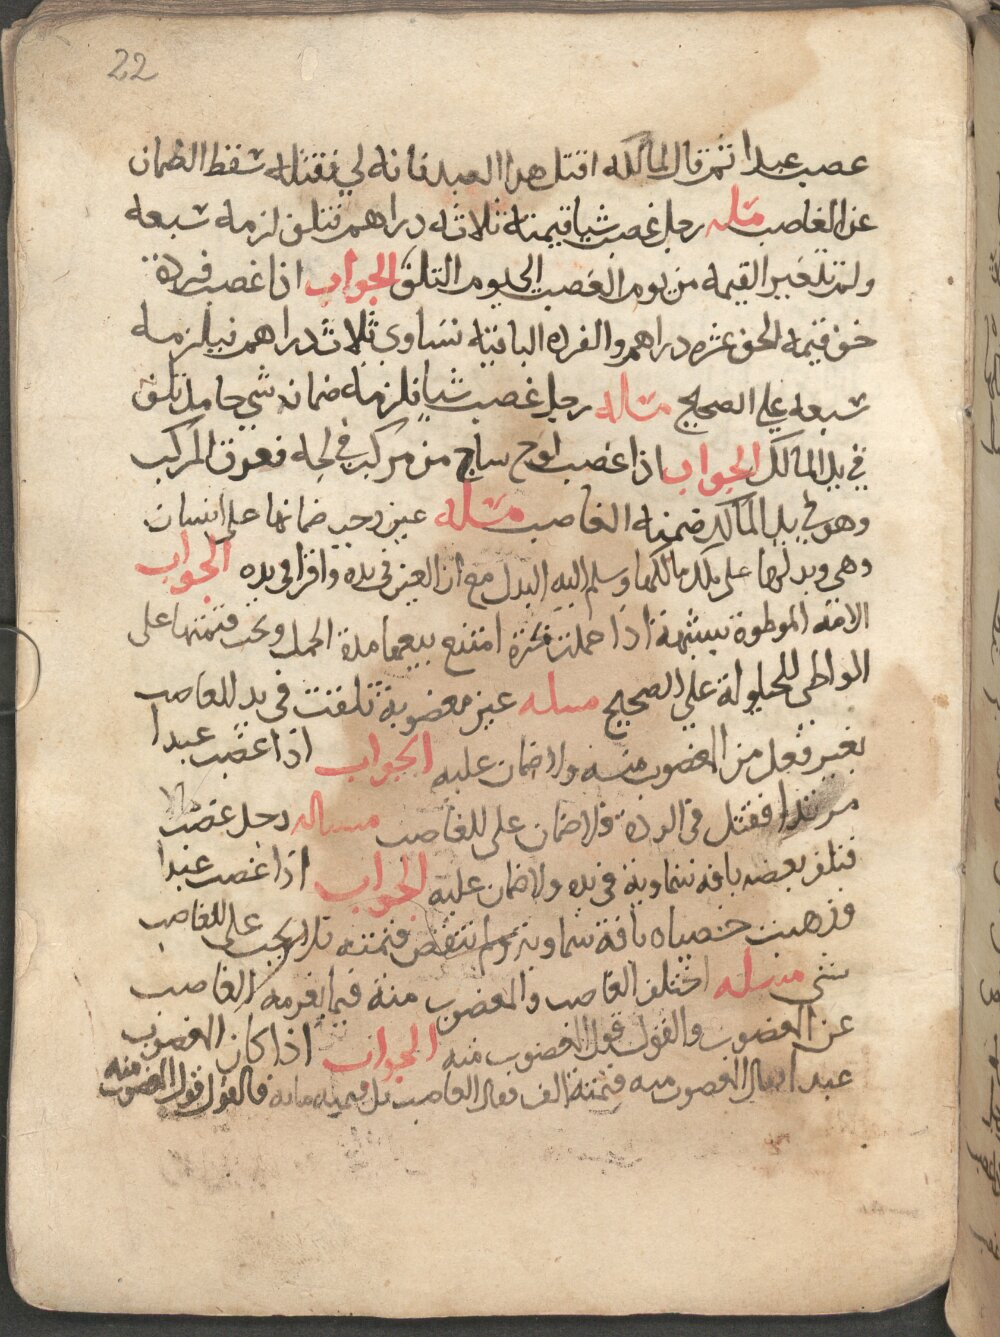 22
غصب عبدا ثم قال لمالكه اقتل هدا العبد فانه لي فقتله سقط الضمان
عن الغاصب مسله رجل غصب شيا قيمته ثلاثه دراهم فتلف لزمه سبعه
ولم تتغير القيمه من يوم الغصب الى يوم التلف الجواب اذا غصب فردة
خف قيمه الخف عشره دراهم والفرده الباقيه تساوى ثلاث دراهم فيلزمه
سبعه على الصحيح مساله رجل غصب شيا فلزمه ضمانه شي حامل تلف
في يد المالك الجواب اذا غصب لوح ساج من مركب في لجه فغرق المركب
وهو في يد المالك ضمنه الغاصب مسله عين وجب ضمانها على انسان
وهي وبدلها على ملك مالكها وسلم اليه البدل مع ان العين في يده واقرا في يده الجواب
الامة الموطوة بشبهة اذا حملت بحرة امتنع بيعها مدة الحمل وتجب قيمتها على
الواطى للحيلولة على الصحيح مسله عين مغصوبة تلفت في يد الغاصب
بغير فعل من المغصوب منه ولا ضمان عليه الجواب اذا غصب عبدا
مرتدا فقتل في الردة فلا ضمان على الغاصب مساله رجل غصب
فتلف بعضه بافة سماوية في يده ولا ضمان عليه الجواب اذا غصب عبدا
فذهبت خصياه بافة سماوية ولم تنقص قيمته فلا يجب على الغاصب
شي مسله اختلف الغاصب والمغصوب منه فيما يغرمه الغاصب
عن المغصوب والقول قول المغصوب منه الجواب اذا كان المغصوب
عبدا فقال المغصوب منه قيمته الف فقال الغاصب بل قيمته مايه فالقول قول المغصوب منه